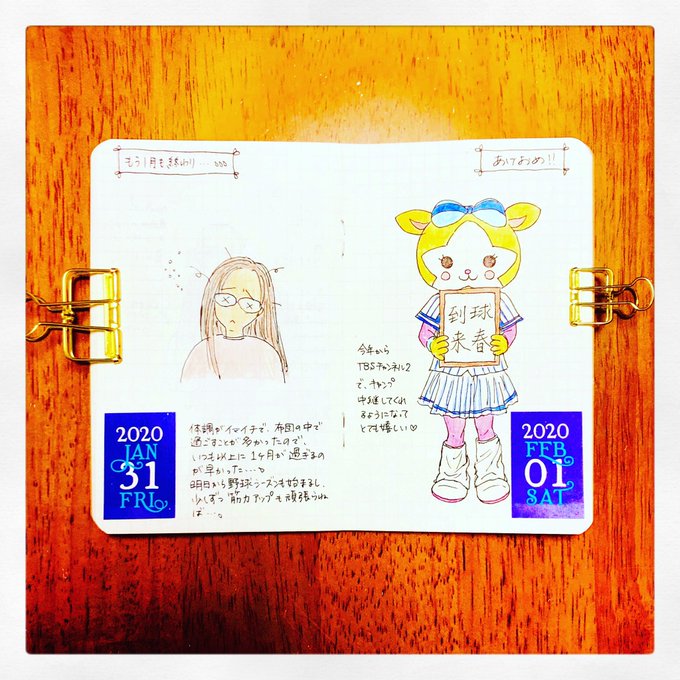 もう1月も終わり……
2020
JAN
31
FRI
体調がイマイチで、布団の中で
過ごすことが多かったので、
いつも以上に1ヶ月が過ぎるの
が早かった…。
明日から野球シーズンも始まるし、
少しずつ筋力アップも頑張らね
ば…。
あけおめ!!
球春
到来
今年から
TBSチャンネル2
で、キャンプ
中継してくれ
るようになって
とても嬉しい♡
2020
FEB
01
SAT